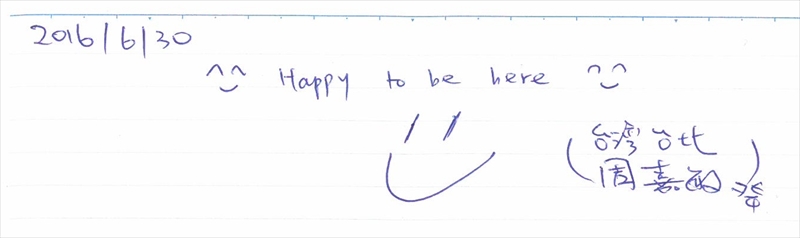 2016/6/30
^^ Happy to be here ^^
(台灣台北
周嘉